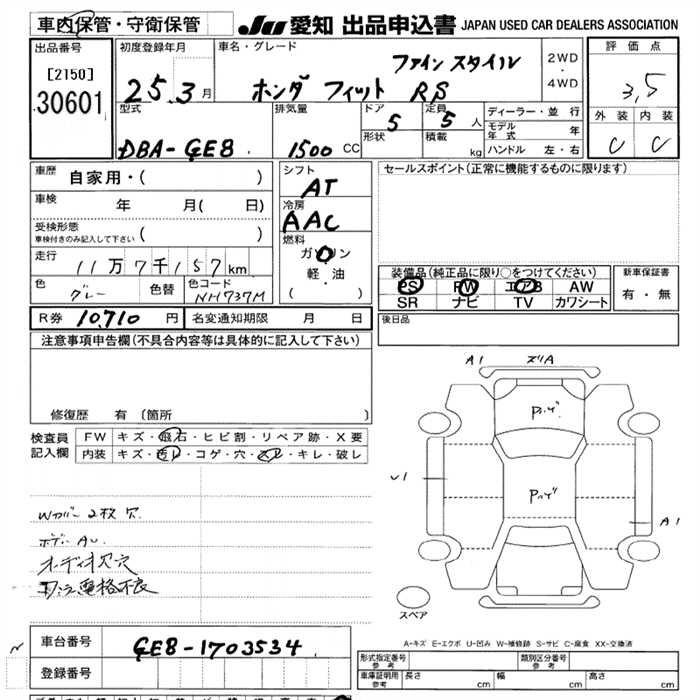 車内保管・守衛保管
JU 愛知 出品申込書 JAPAN USED CAR DEALERS ASSOCIATION
出品番号
[2150]
30601
初度登録年月
25.3月
車名・グレード
ファインスタイル
ホンダ フィット RS
2WD
・
4WD
評価点
3,5
外装 内装
C C
型式
DBA-GE8
排気量
1500 CC
ドア
5
形状
定員
5人
積載
kg
ディーラー・並行
モデル年式 年
ハンドル 左・右
車歴 自家用・( )
車検 年 月( 日)
受検形態
車検付きのみ記入して下さい ( )
走行 11万7千157km
色 グレー 色替 色コード NH737M
シフト
AT
冷房
AAC
燃料
ガソリン
軽・油
( )
セールスポイント(正常に機能するものに限ります)
装備品(純正品に限り○をつけてください)
PS PW エアB AW
SR ナビ TV カワシート
新車保証書
有・無
R券 10,710円 名変通知期限 月 日
後日品
注意事項申告欄(不具合内容等は具体的に記入して下さい)
修復歴 有 (箇所 )
検査員
記入欄
FW キズ・飛石・ヒビ割・リペア跡・X要
内装 キズ・汚レ・コゲ・穴・スレ・キレ・破レ
Wカバー2枚欠
ボディ AU
オーディオ欠穴
A1 ズリA
U1
A1
スペア
A-キズ E-エクボ U-凹み W-補修跡 S-サビ C-腐食 XX-交換済
車台番号 GE8-1703534
登録番号
形式指定番号
参考
類別区分番号
参考
車庫証明用
参考
長さ cm 幅 cm 高さ cm